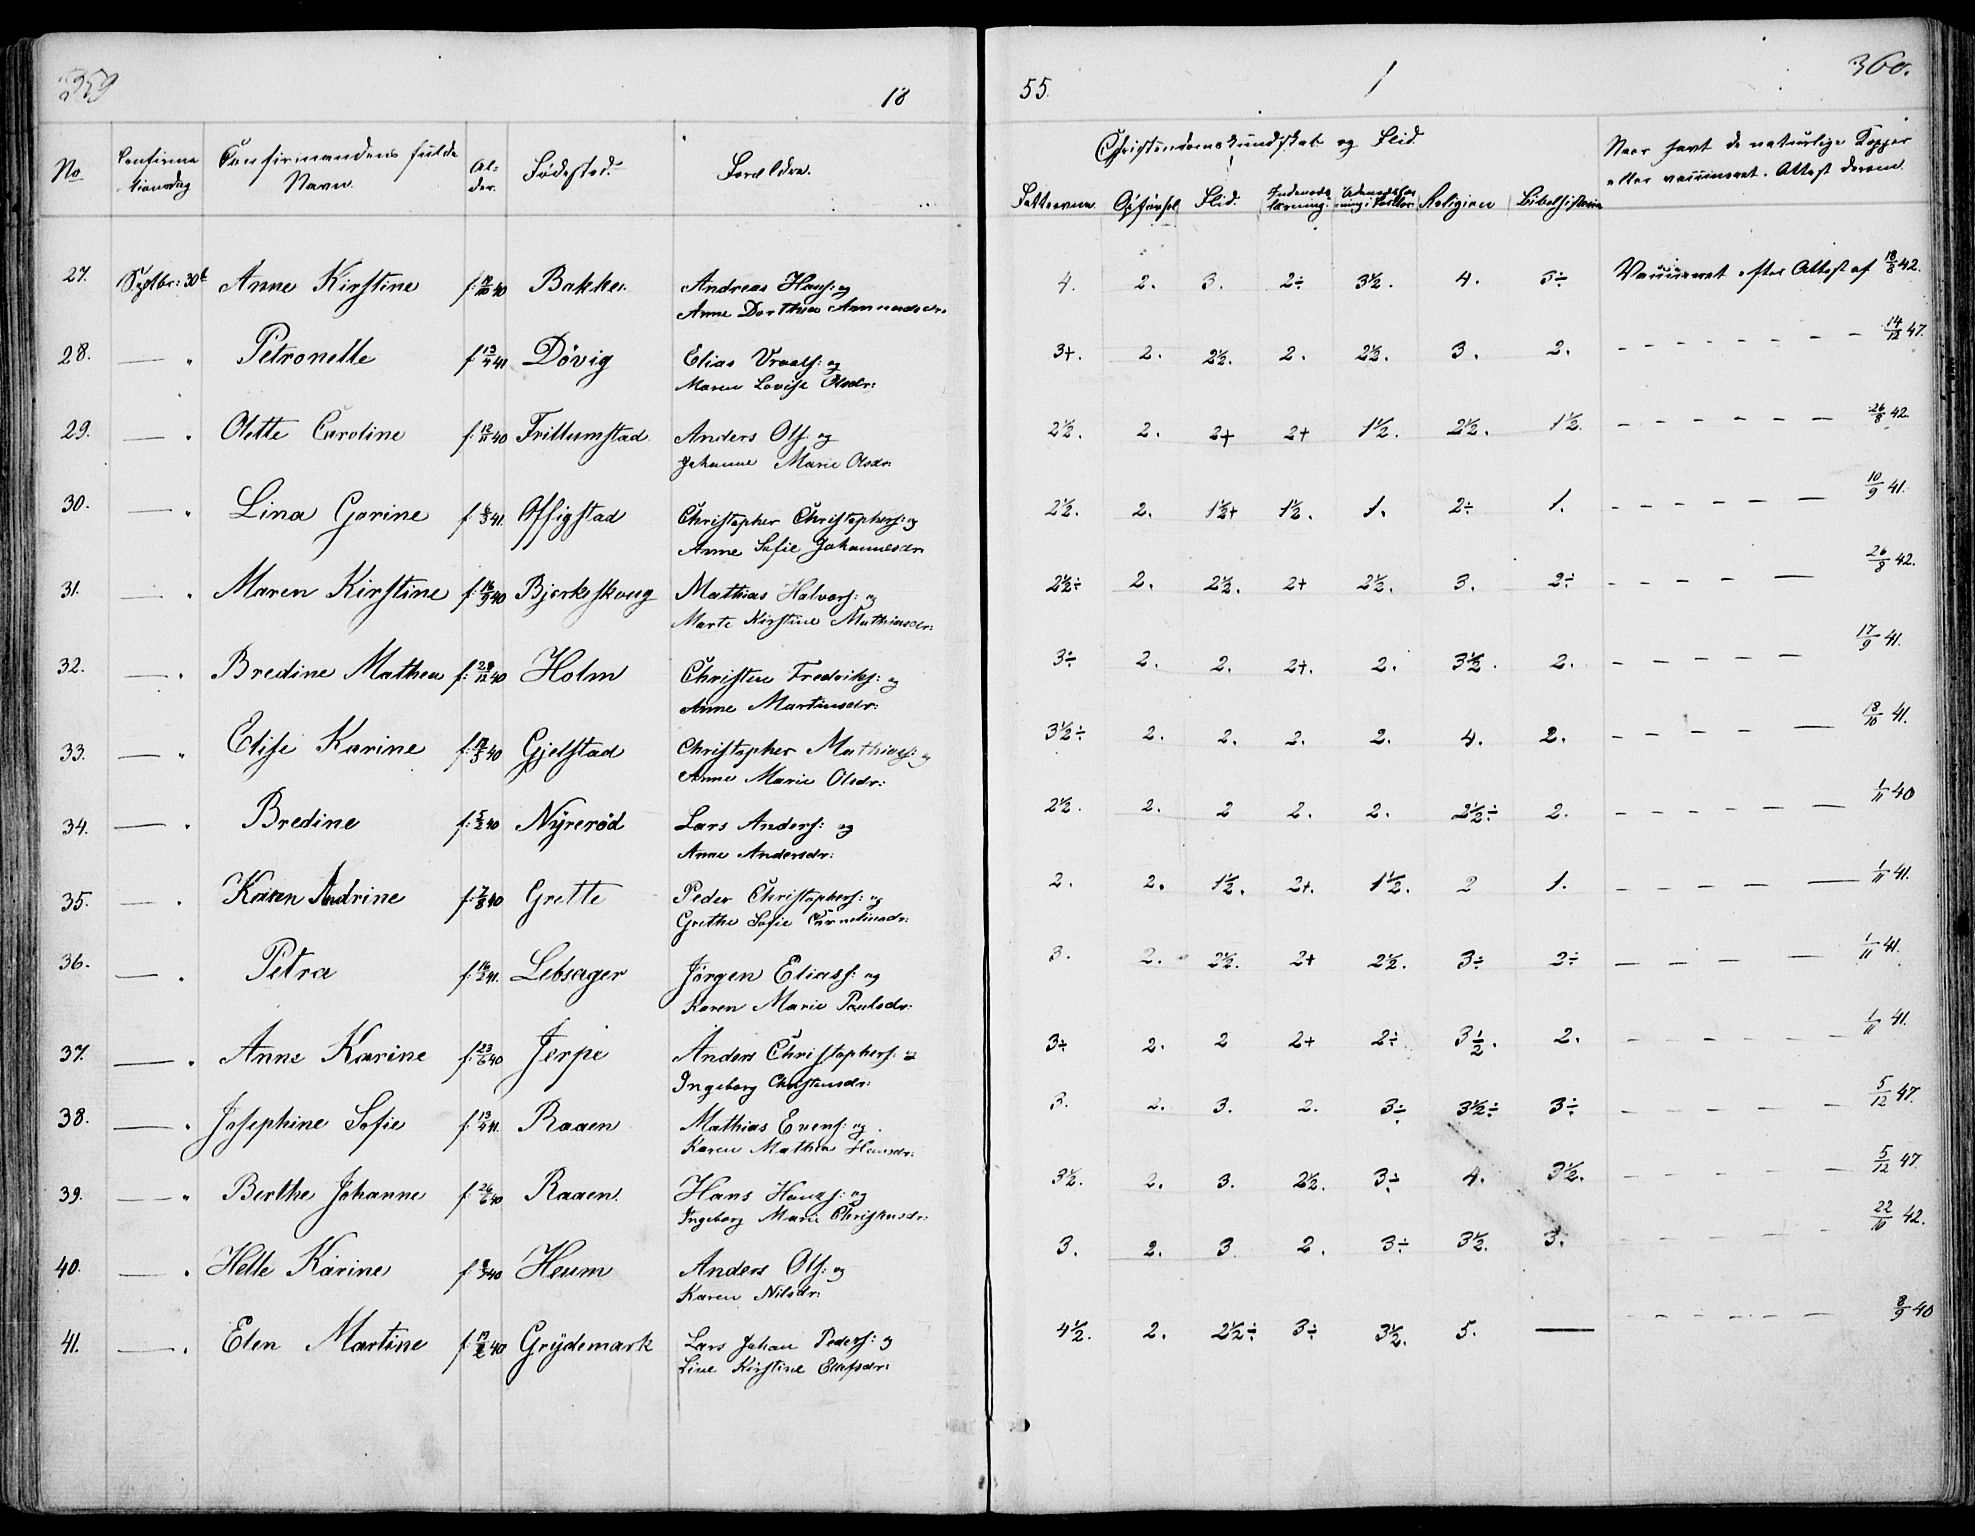 359
18
55.
360.
No
Confirma
tionsdag
Confirmandens fulde
Navn.
Al-
der.
Fødested.
Forældre.
Christendomskundskab og Flid
Fatteevne
Opførsel
Flid.
Religion
Bibelhistorie
Naar havt de naturlige Kopper
eller vaccineret. Attest derom.
27. Septbr: 30te Anne Kirstine f. 40 Bakke. Andreas Hans: og
Anne Dorthea
4. 2. 3. 2÷ 3½. 4. 3÷ Vaccineret efter Attest af 18/8 42.
28. — " Petronelle f. 13/4 41 Døvig Elias Vraals: og
Maren Lovise Olsdr:
3+. 2. 2½. 2. 2½. 3. 2. - - - - - - - 14/12 47.
29. — " Olette Caroline f. 12/11 40 Trillumstad Anders Ols: og
Johanne Marie Olsdr:
2½. 2. 2+ 2+ 1½. 2½. 1½. - - - - - - 26/8 42
30. — " Lina Gorine f. 41. Affigstad Christopher Christophers: og
Anne Sofie Johannesdr:
2½. 2. 1½+ 1½. 1. 2÷ 1. - - - - - - 10/9 41.
31. — " Maren Kirstine f. 16/9 40 Bjerkeskoug Mathias Halvors: og
Marte Kirstine Mathiasdr:
2½÷ 2. 2½. 2+ 2½. 3. 2÷ - - - - - 26/8 42.
32. — " Bredine Mathea f. 28/12 40 Holm Christen Fredriks: og
Anne Martinsdr:
3÷ 2. 2. 2+. 2. 3½. 2. - - - - - 17/9 41.
33. — " Elise Karine f. 40 Gjelstad Christopher Mathias: og
Anne Marie Olsdr:
3½÷ 2. 2. 2. 2. 4. 2. - - - - - 18/10 41.
34. — " Bredine f. 5/2 40 Nÿrerød Lars Anders: og
Anne Andersdr:
2½. 2. 2 2. 2. 2½÷ 2. - - - - - - 1/11 40
35. — " Karen Andrine f. 7/8 40 Grette Peder Christophers: og
Grethe Sofie Corneliusdr:
2. 2. 1½. 2+. 1½. 2 1. - - - - 1/11 41.
36. — " Petra f. 16/2 41. Lebsager Jørgen Elias: og
Karen Marie Paulsdr:
3. 2. 2½. 2+ 2½. 3÷ 2÷ - - - - - 1/11 41.
37. — " Anne Karine f. 23/6 40 Jerpe Anders Christophers: og
Ingeborg Christensdr:
3÷ 2. 2 2+ 2÷ 3½. 2. - - - - - - 1/11 41.
38. — " Josephine Sofie f. 13/4 41. Raaen Mathias Evens: og
Karen Mathea Hansdr:
3. 2. 3. 2. 3÷ 3½÷ 3÷ - - - - - - 5/12 47.
39. — " Berthe Johanne f. 26/6 40 Raaen. Hans Hans: og
Ingeborg Marie Christensdr:
3½. 2. 3. 2½. 3÷ 4. 3½. - - - - - - 5/12 47.
40. — " Helle Karine f. 40 Heum Anders Ols: og
Karen Nilsdr:
3. 2. 3. 2. 3÷ 3½. 3. - - - - - - 22/10 42.
41. — " Elen Martine f. 40 Grÿdemark Lars Johan Peders: og
Line Kirstine Ellefsdr:
4½. 2. 2½÷ 3÷ 3½. 5. — - - - - - - 8/9 40